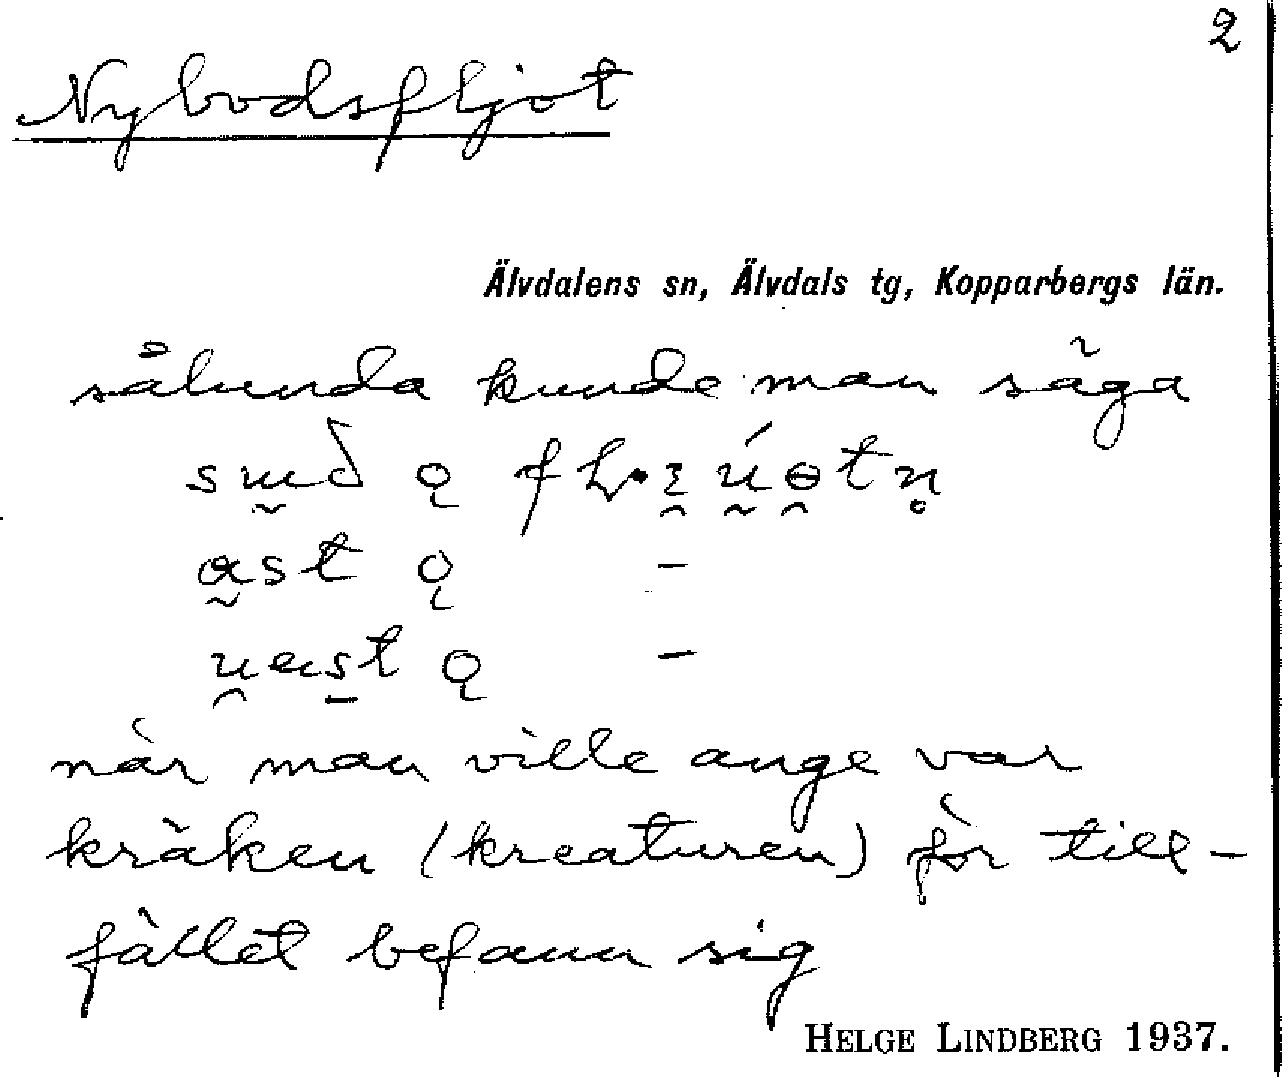 2
Nybodsfljot
Älvdalens sn, Älvdals tg, Kopparbergs län.
sålunda kunde man säga
när man ville ange var
kräken (kreaturen) för till-
fället befann sig
HELGE LINDBERG 1937.